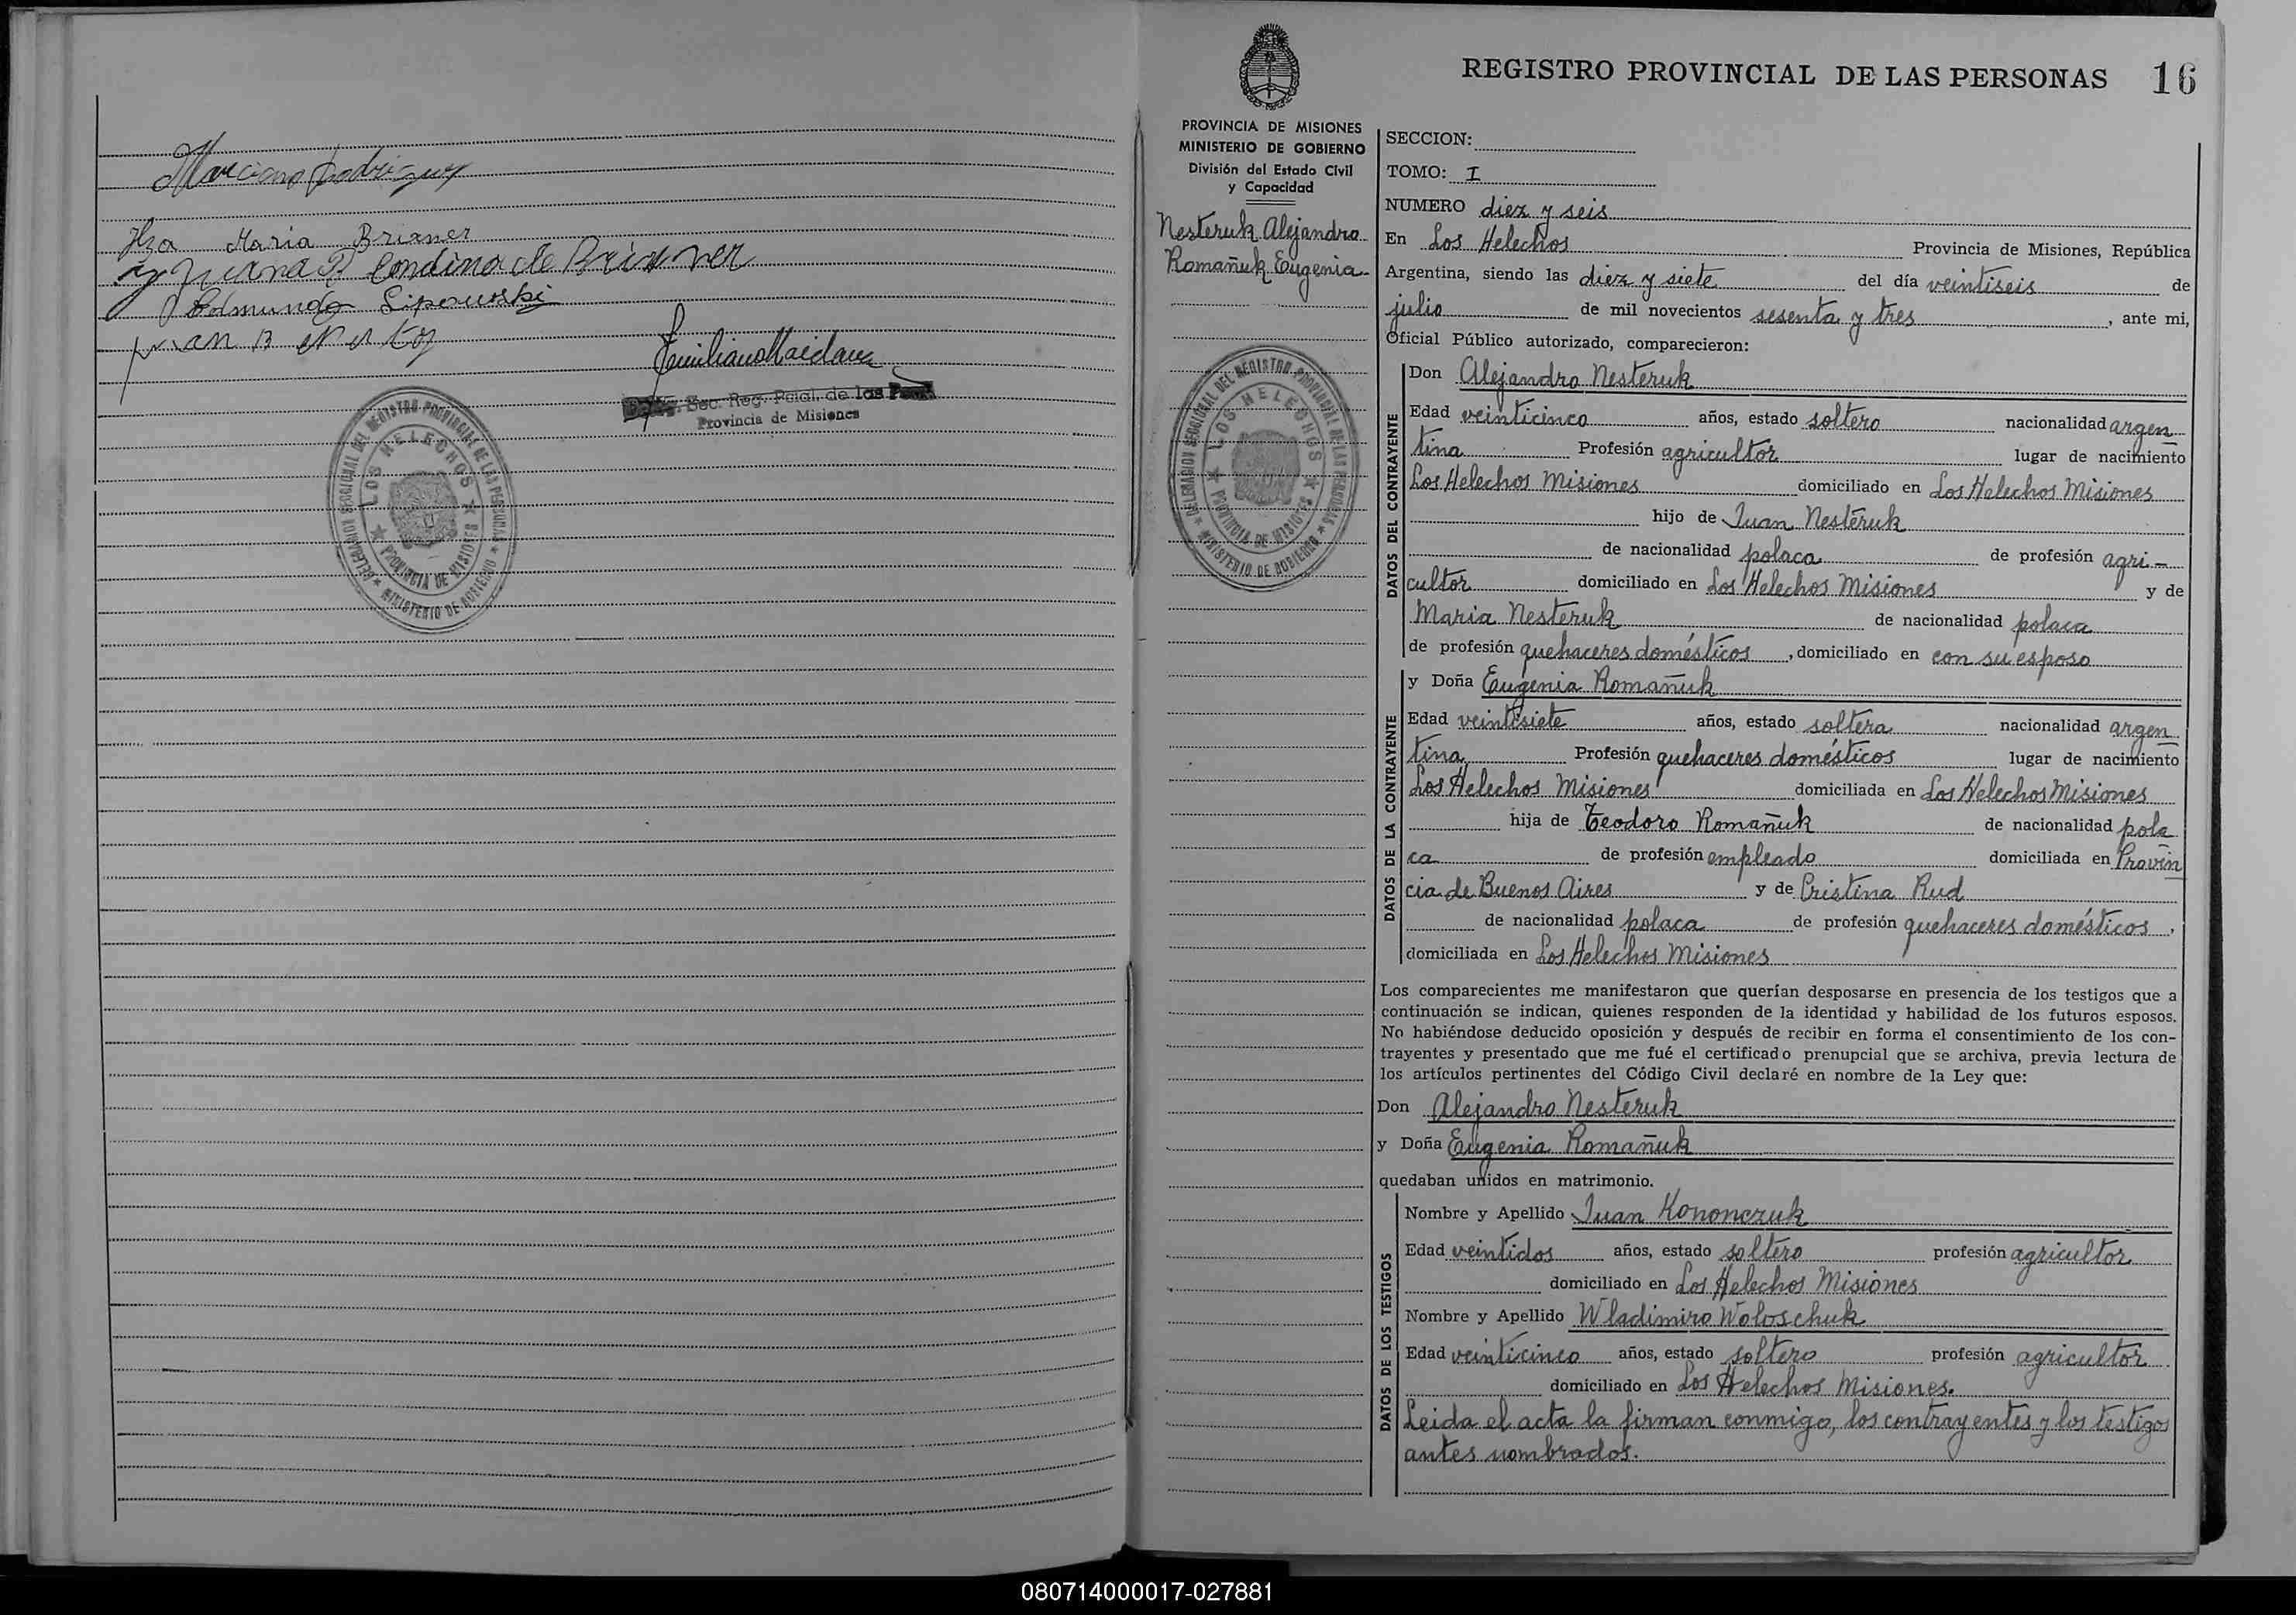 Marciano Rodriguez
Ilza Maria Brixner
Juana R Condina de Brixner
Edmundo Lipowski
Juan B
Emiliano
Sec. Reg. Pcial. de las
Provincia de Misiones
DELEGACION SECCIONAL DEL REGISTRO PROVINCIAL DE LAS PERSONAS
LOS HELECHOS
PROVINCIA DE MISIONES
MINISTERIO DE GOBIERNO
REGISTRO PROVINCIAL DE LAS PERSONAS 16
PROVINCIA DE MISIONES
MINISTERIO DE GOBIERNO
División del Estado Civil
y Capacidad
Nesteruk Alejandro
Romañuk Eugenia
DELEGACION SECCIONAL DEL REGISTRO PROVINCIAL DE LAS PERSONAS
LOS HELECHOS
PROVINCIA DE MISIONES
MINISTERIO DE GOBIERNO
SECCION:
TOMO: I
NUMERO diez y seis
En Los Helechos Provincia de Misiones, República
Argentina, siendo las diez y siete del día veintiseis de
julio de mil novecientos sesenta y tres, ante mi,
Oficial Público autorizado, comparecieron:
DATOS DEL CONTRAYENTE
Don Alejandro Nesteruk
Edad veinticinco años, estado soltero nacionalidad argen
tina Profesión agricultor lugar de nacimiento
Los Helechos Misiones domiciliado en Los Helechos Misiones
hijo de Juan Nesteruk
de nacionalidad polaca de profesión agri-
cultor domiciliado en Los Helechos Misiones y de
Maria Nesteruk de nacionalidad polaca
de profesión quehaceres domésticos, domiciliado en con su esposo
DATOS DE LA CONTRAYENTE
y Doña Eugenia Romañuk
Edad veintisiete años, estado soltera nacionalidad argen
tina Profesión quehaceres domésticos lugar de nacimiento
Los Helechos Misiones domiciliada en Los Helechos Misiones
hija de Teodoro Romañuk de nacionalidad pola
ca de profesión empleado domiciliada en Provin
cia de Buenos Aires y de Cristina Rud
de nacionalidad polaca de profesión quehaceres domésticos,
domiciliada en Los Helechos Misiones
Los comparecientes me manifestaron que querían desposarse en presencia de los testigos que a
continuación se indican, quienes responden de la identidad y habilidad de los futuros esposos.
No habiéndose deducido oposición y después de recibir en forma el consentimiento de los con-
trayentes y presentado que me fué el certificado prenupcial que se archiva, previa lectura de
los artículos pertinentes del Código Civil declaré en nombre de la Ley que:
Don Alejandro Nesteruk
y Doña Eugenia Romañuk
quedaban unidos en matrimonio.
DATOS DE LOS TESTIGOS
Nombre y Apellido Juan Kononczuk
Edad veintidos años, estado soltero profesión agricultor
domiciliado en Los Helechos Misiones
Nombre y Apellido Wladimiro Woloschuk
Edad veinticinco años, estado soltero profesión agricultor
domiciliado en Los Helechos Misiones.
Leida el acta la firman conmigo, los contrayentes y los testigos
antes nombrados.
080714000017-027881